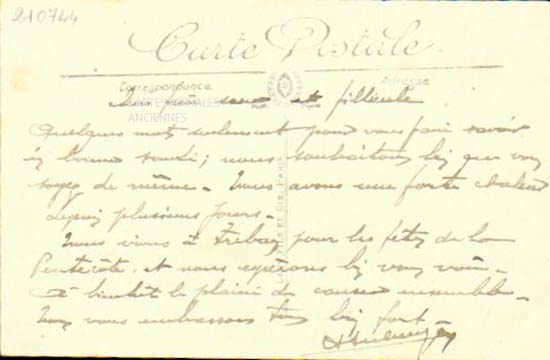 210744
Carte Postale
Correspondance
Adresse
CARTES POSTALES
ANCIENNES
sœur et fillieule
Quelques mots seulement pour vous faire savoir
bonne santé; nous souhaitons bien que vous
soyez de même. Nous avons une forte chaleur
depuis plusieurs jours.
Nous irons à Trébas pour les fêtes de la
Pentecôte, et nous espérons bien vous voir.
À bientôt le plaisir de causer ensemble.
Nous vous embrassons tous bien fort
FILS ET CIE, PARIS